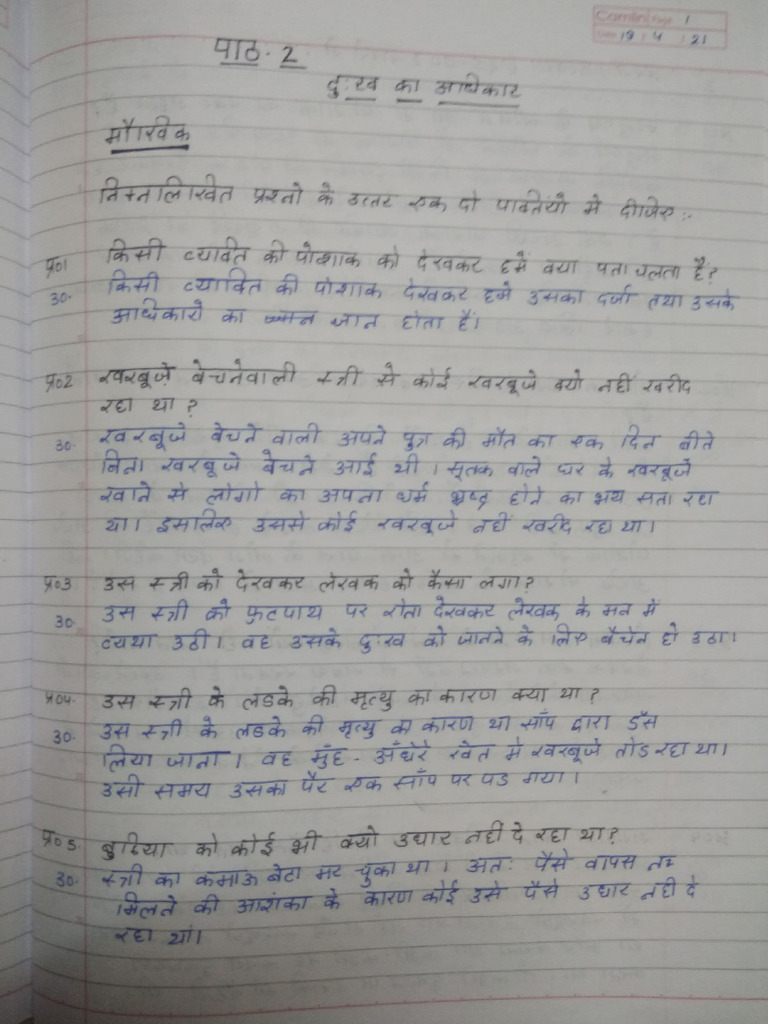 Camlin Page 1
Date 19 / 4 / 21
पाठ - 2
दुःख का अधिकार
मौखिक
निम्नलिखित प्रश्नो के उत्तर एक दो पंक्तियों मे दीजिए :-
प्र०1 किसी व्यक्ति की पोशाक को देखकर हमें क्या पता चलता है?
उ०- किसी व्यक्ति की पोशाक देखकर हमे उसका दर्जा तथा उसके
अधिकारो का ज्ञान होता है।
प्र०2 खरबूजे बेचनेवाली स्त्री से कोई खरबूजे क्यो नहीं खरीद
रहा था?
उ०- खरबूजे बेचने वाली अपने पुत्र की मौत का एक दिन बीते
बिना खरबूजे बेचने आई थी। सूतक वाले घर के खरबूजे
खाने से लोगो का अपना धर्म भ्रष्ट होने का भय सता रहा
था। इसलिए उससे कोई खरबूजे नहीं खरीद रहा था।
प्र०3 उस स्त्री को देखकर लेखक को कैसा लगा?
उ०- उस स्त्री को फुटपाथ पर रोता देखकर लेखक के मन मे
व्यथा उठी। वह उसके दुःख को जानने के लिए बैचेन हो उठा।
प्र०4- उस स्त्री के लडके की मृत्यु का कारण क्या था?
उ०- उस स्त्री के लडके की मृत्यु का कारण था साँप द्वारा डँस
लिया जाना। वह मुँह - अँधेरे खेत मे खरबूजे तोड रहा था।
उसी समय उसका पैर एक साँप पर पड गया।
प्र०5- बुढिया को कोई भी क्यो उधार नही दे रहा था?
उ०- स्त्री का कमाऊ बेटा मर चुका था। अतः पैसे वापस न
मिलने की आशंका के कारण कोई उसे पैसे उधार नही दे
रहा था।